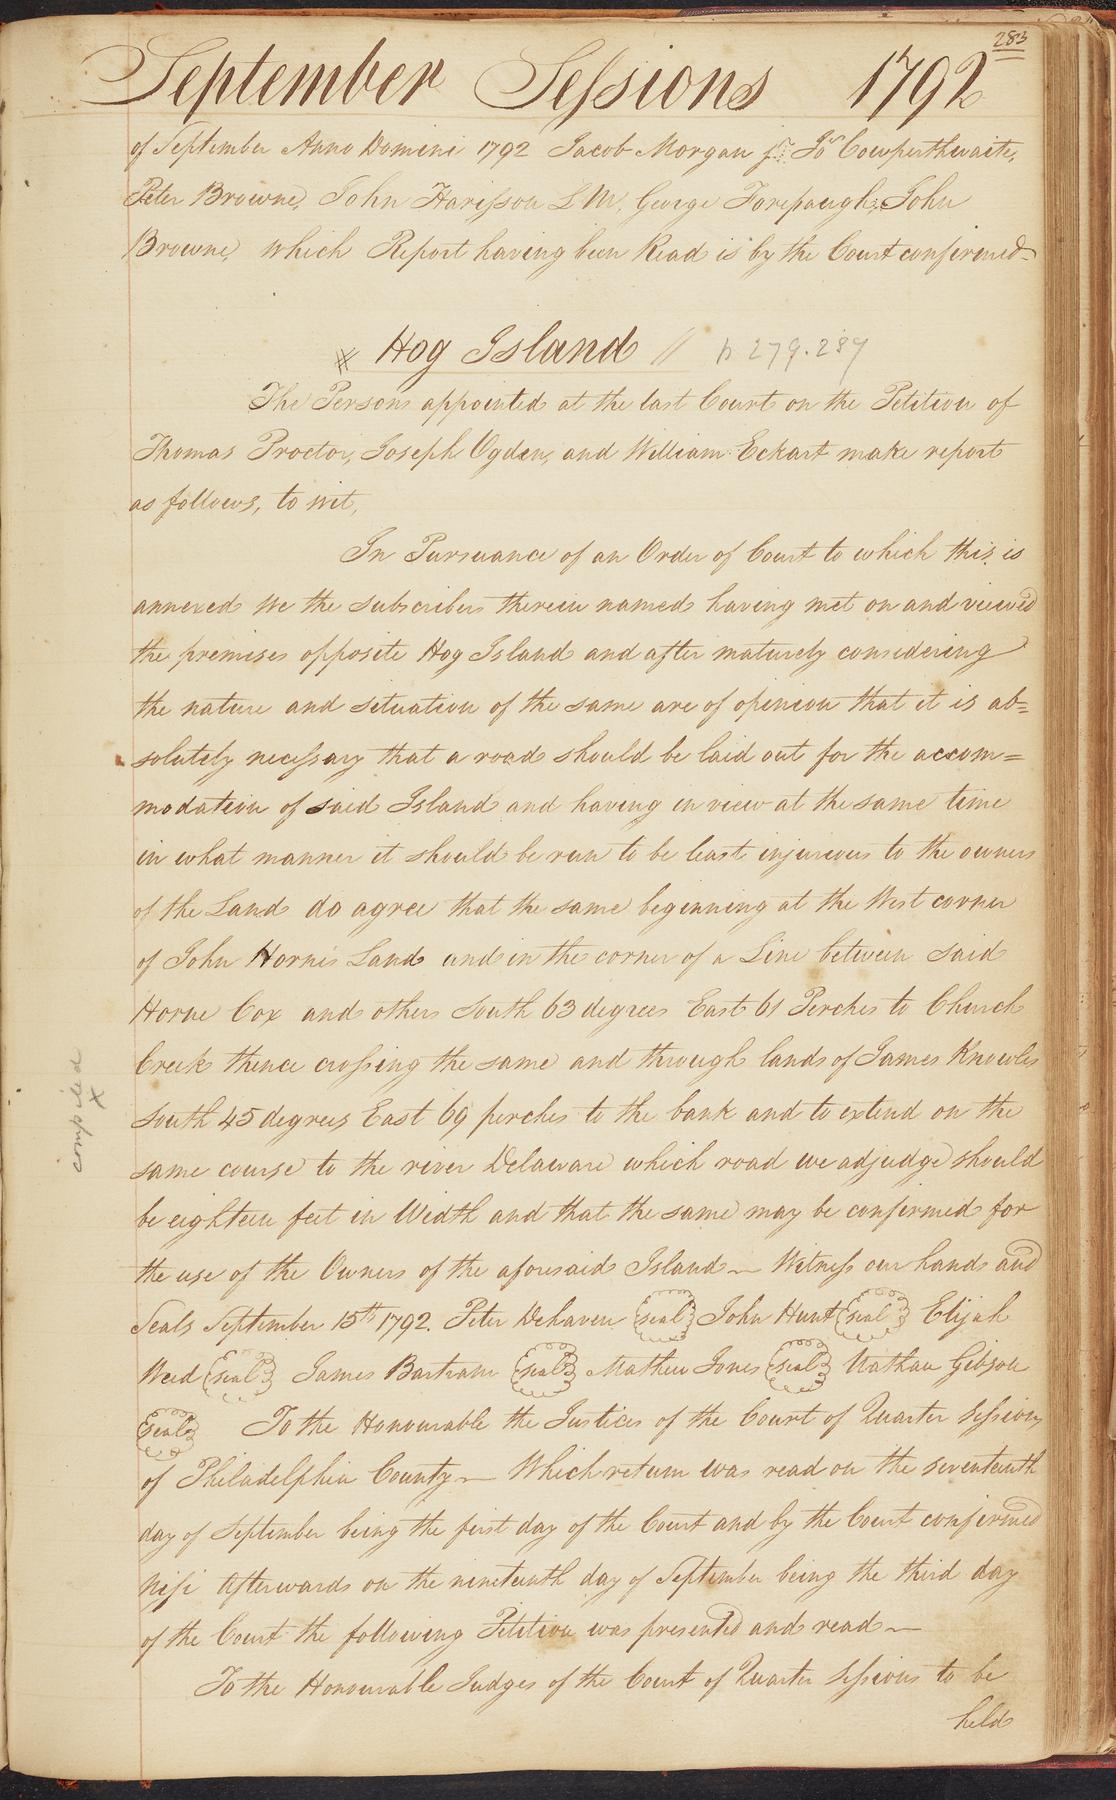 283
September Sessions 1792
of September Anno Domini 1792 Jacob Morgan Jos Cowperthwaite,
Peter Browne, John Harisson L M, George Forepaugh, John
Browne, which Report having been Read is by the Court confirmed
Hog Island // p 279.289
The Persons appointed at the last Court on the Petition of
Thomas Proctor, Joseph Ogden, and William Eckart make report
as follows, to wit,
In Pursuance of an Order of Court to which this is
annexed We the subscribers therein named having met on and viewed
the premises opposite Hog Island and after maturely considering
the nature and situation of the same are of opinion that it is ab=
solutely necessary that a road should be laid out for the accom=
modation of said Island and having in view at the same time
in what manner it should be run to be least injurious to the owners
of the Land do agree that the same beginning at the West corner
of John Horne's Land and in the corner of a Line between said
Horne Cox and others South 63 degrees East 61 Perches to Church
Creek thence crossing the same and through lands of James Knowles
South 45 degrees East 69 perches to the bank and to extend on the
same course to the river Delaware which road we adjudge should
be eighteen feet in Width and that the same may be confirmed for
the use of the Owners of the aforesaid Island — Witness our hands and
Seals September 15th 1792. Peter Dehaven seal John Hunt seal Elijah
Weed seal James Bartram seal Mathew Jones seal Nathan Gibson
seal To the Honourable the Justices of the Court of Quarter Sessions
of Philadelphia County — Which return was read on the seventeenth
day of September being the first day of the Court and by the Court confirmed
Nisi Afterwards on the nineteenth day of September being the third day
of the Court the following Petition was presented and read —
To the Honourable Judges of the Court of Quarter Sessions to be
held
compiled
x